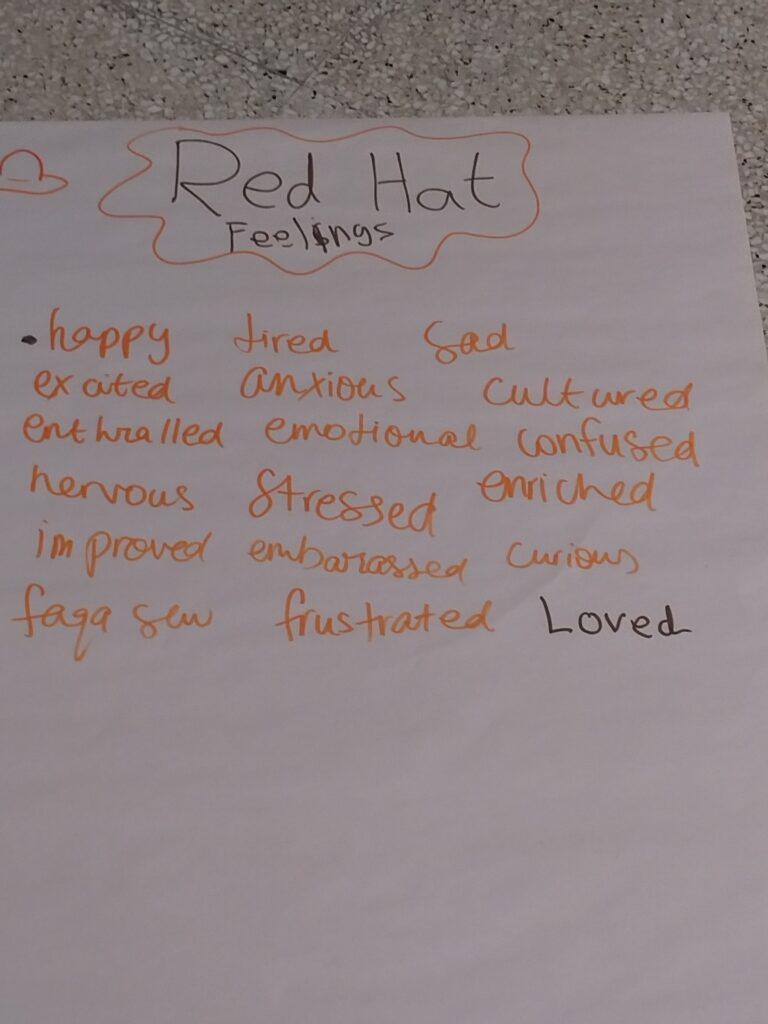 Red Hat
Feelings
• happy tired sad
excited anxious cultured
enthralled emotional confused
nervous stressed enriched
improved embarassed curious
faqa sew frustrated Loved